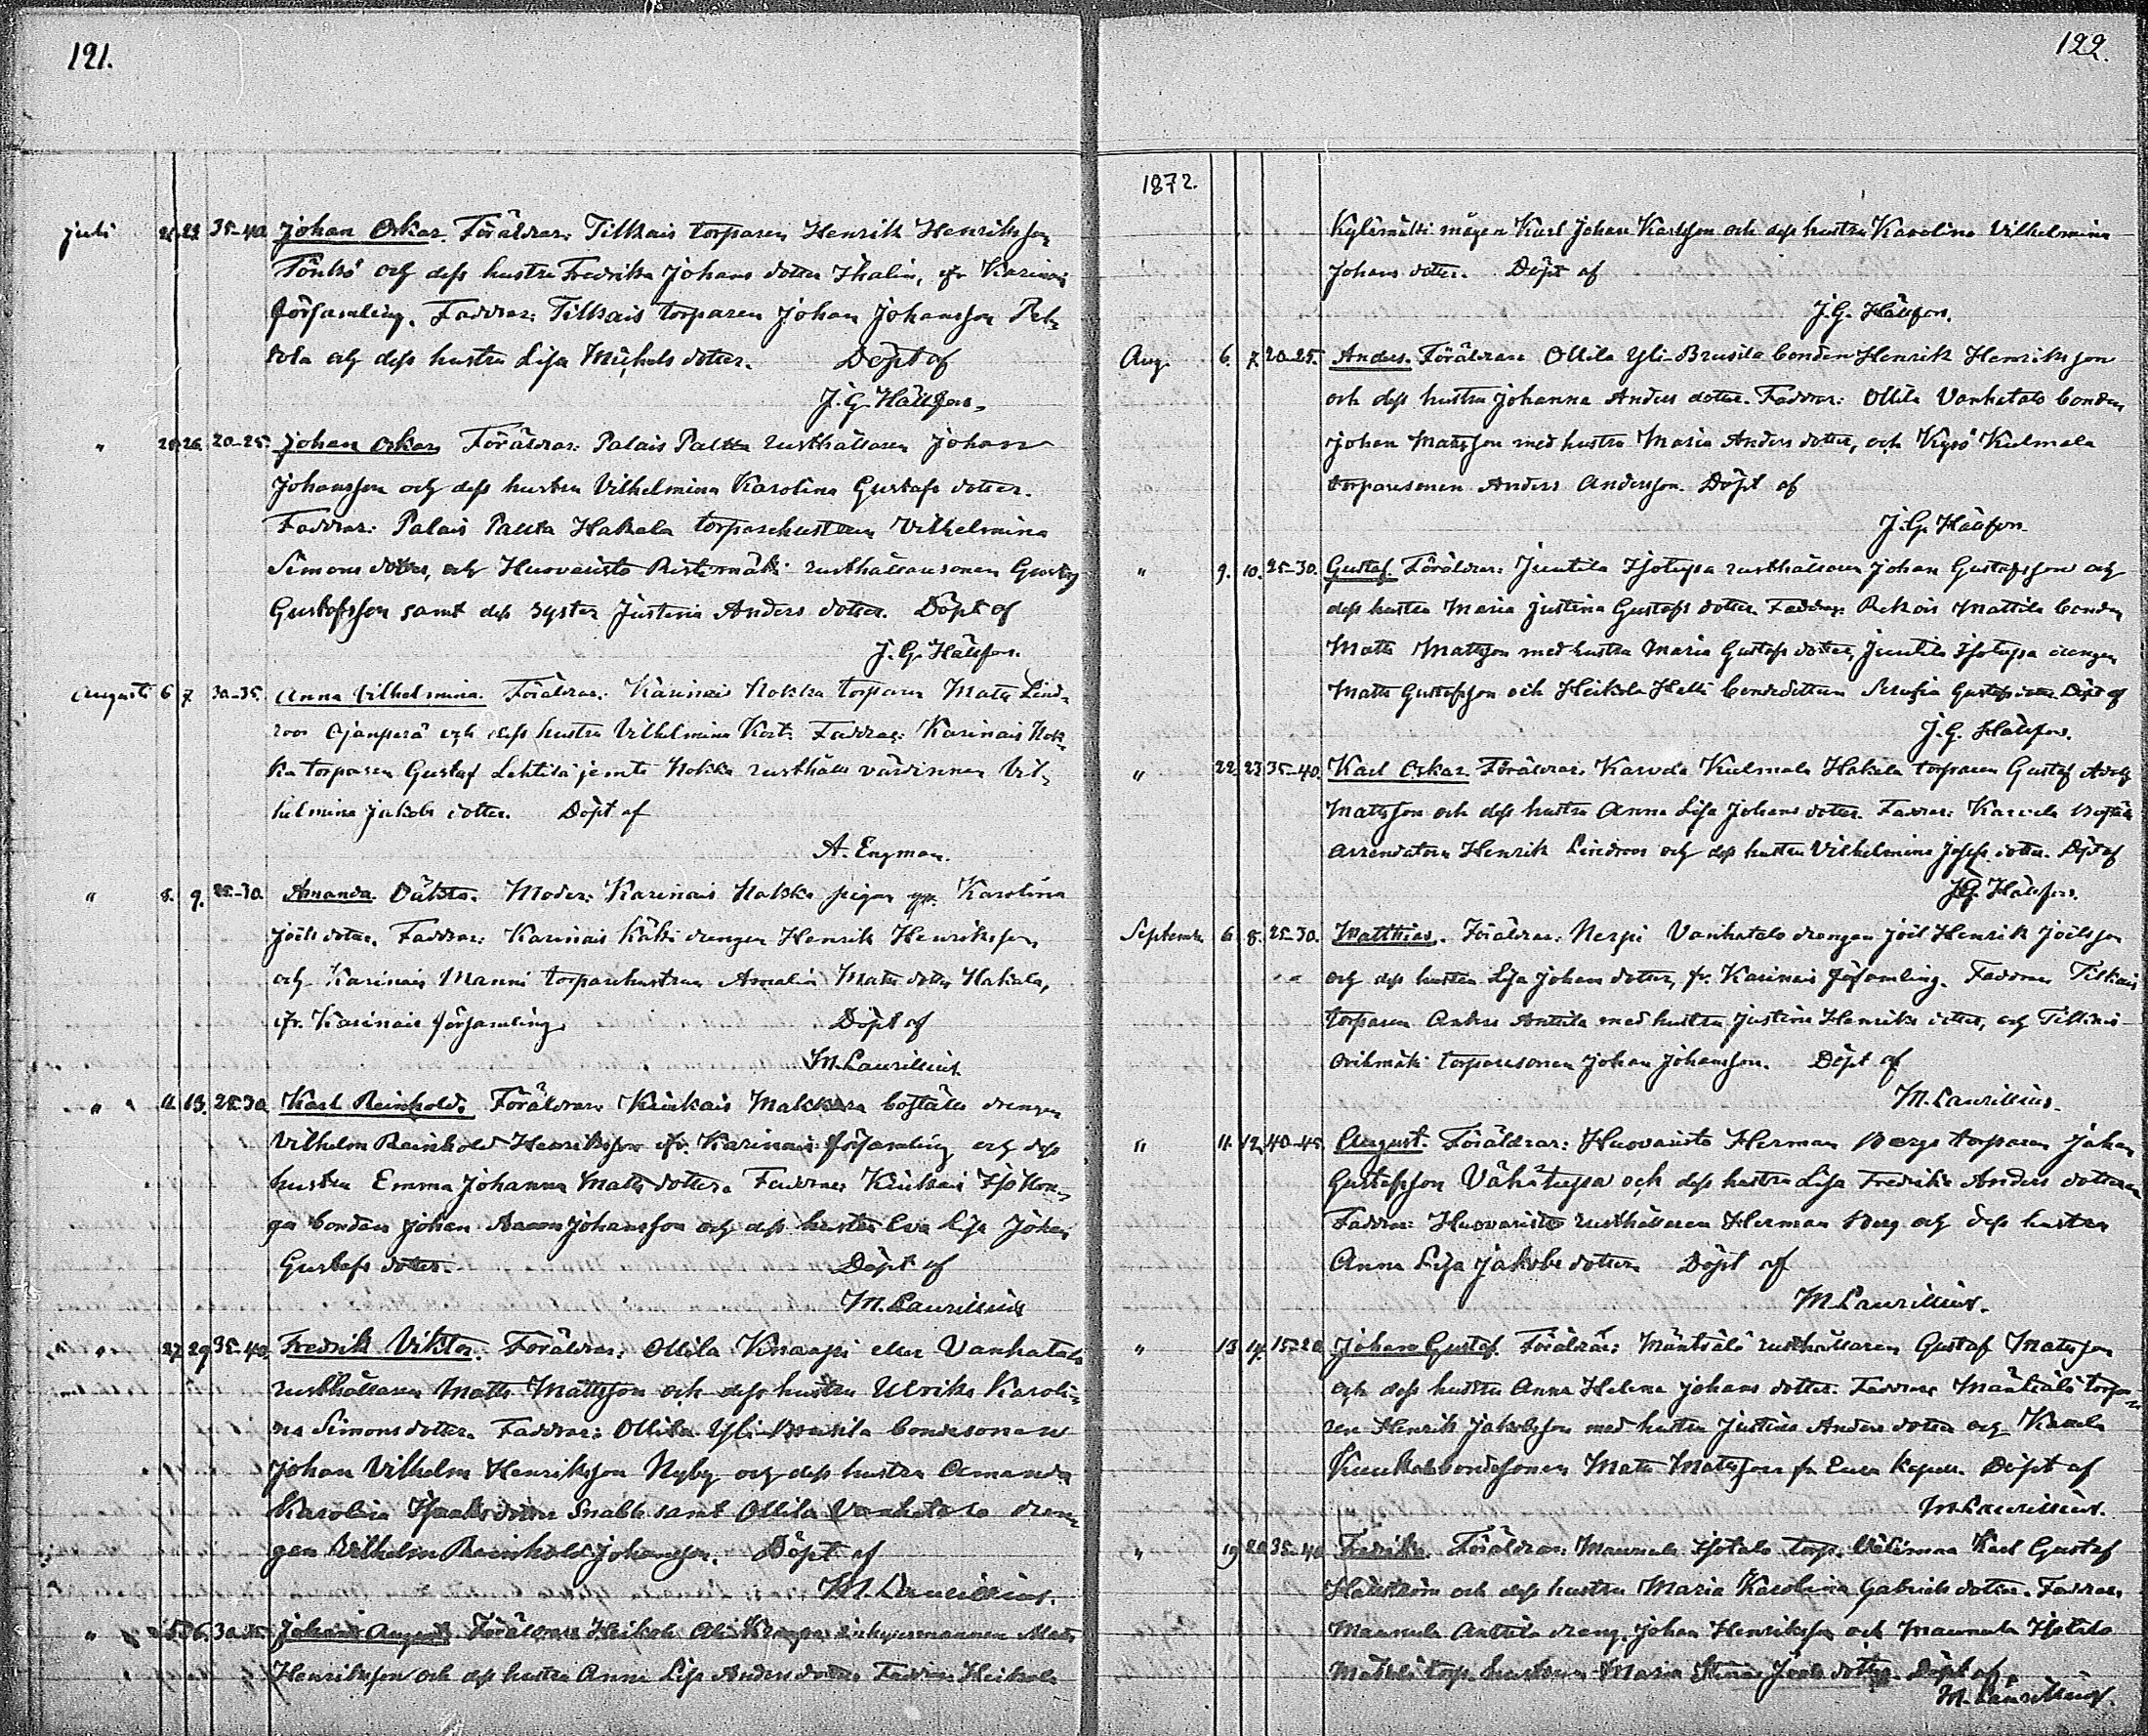 121.
juli 22. 23. 35-40. Johan Oskar. Föräldrar: Tilkais torparen Henrik Henriksson
Tönkö och dess hustru Fredrika Johans dotter Ihalin, ifr. Karinais
församling. Faddrar: Tilkais torparen Johan Johansson Pel-
tola och dess hustru Lisa Michels dotter. Döpt af
J. G. Hällfors.
" 25. 26. 20-25. Johan Oskar. Föräldrar: Palais Pautta rusthållaren Johan
Johansson och dess hustru Vilhelmina Karolina Gustafs dotter.
Faddrar: Palais Pautta Hakala torparehustrun Vilhelmina
Simons dotter, och Huovaristo Ristimäki rusthållaresonen Gustaf
Gustafsson samt dess syster Justina Anders dotter. Döpt af
J. G. Hällfors.
Augusti 6 7. 30-35. Anna Vilhelmina. Föräldrar: Karinais Nokka torparen Matts Lind-
roos Ojanperä och dess hustru Vilhelmina Faddrar: Karinais Nok-
ka torparen Gustaf Lehtilä jemte Nokka rusthålls värdinnan Vil-
helmina Jakobs dotter. Döpt af
A. Engman.
" 8. 9. 25-30. Amanda. Oäkta. Moder: Karinais Nokka pigan Karolina
Joels dotter. Faddrar: Karinais drengen Henrik Henriksson,
och Karinais Manni torparehustrun Amalia Matts dotter Hakala,
ifr. Karinais församling. Döpt af
M. Laurillius.
" 11. 13. 25-30. Karl Reinhold. Föräldrar: Kiukais boställs drengen
Vilhelm Reinhold Henriksson ifr. Karinais församling och dess
hustru Emma Johanna Matts dotter. Faddrar: Kiukais
bonden Johan Johansson och dess hustru Eva Lisa
Gustafs dotter. Döpt af
M. Laurillius
" 27. 29. 35-40. Fredrik Viktor. Föräldrar: Ollila Knaapi eller Vanhatalo
rusthållaren Matts Mattsson och dess hustru Ulrika Karoli-
na Simonsdotter. Faddrar: Ollila Yli-Brusila bondesonen
Johan Vilhelm Henriksson Nyby och dess hustru Amanda
Karolina Isaksdotter Snabb samt Ollila Vanhatalo dren-
gen Vilhelm Reinhold Johansson. Döpt af
M. Laurillius.
" 30-35. Johan August. Föräldrar: Heikola Matts
Henriksson och dess hustru Anna Lisa Andersdotter. Faddrar: Heikola
122.
1872.
Kylämäki mågen Karl Johan Karlsson och dess hustru Karolina Vilhelmina
Johans dotter. Döpt af
J. G. Hällfors.
Aug. 6. 7. 20-25. Anders. Föräldrar: Ollila Yli-Brusila bonden Henrik Henriksson
och dess hustru Johanna Anders dotter. Faddrar: Ollila Vanhatalo bonden
Johan Mattsson med hustru Maria Anders dotter, och Kyrö Kulmala
torparesonen Anders Andersson. Döpt af
J. G. Hällfors.
" 9. 10. 25-30. Gustaf. Föräldrar: Juntila Isotupa rusthållaren Johan Gustafsson och
dess hustru Maria Justina Gustafs dotter. Faddrar: Rekois Mattila bonden
Matts Mattsson med hustru Maria Gustafs dotter, Juntila Isotupa drengen
Matts Gustafsson och Heikola Heikki bondedottren Serafia Gustafs dotter. Döpt af
J. G. Hällfors.
" 22. 23. 35-40. Karl Oskar. Föräldrar: Karvela Kulmala Hakala torparen Gustaf Adolf
Mattsson och dess hustru Anna Lisa Johans dotter. Faddrar: Karvela
arrendatorn Henrik Lindroos och dess hustru Vilhelmina Josefs dotter. Döpt af
J. G. Hällfors.
September 6. 8. 25-30. Matthias. Föräldrar: Nerpi Vanhatalo drengen Joel Henrik Joelsson
och dess hustru Lisa Johans dotter, fr. Karinais församling. Faddrar: Tilkais
torparen Anders Anttila med hustru Justina Henriks dotter, och
torparesonen Johan Johansson. Döpt af
M. Laurillius.
" 11. 12. 40-45. August. Föräldrar: Huovaristo Herman Bergs torparen Johan
Gustafsson Vähätupa och dess hustru Lisa Fredrika Anders dotter.
Faddrar: Huovaristo rusthållaren Herman Berg och dess hustru
Anna Lisa Jakobs dotter. Döpt af
M. Laurillius.
" 13. 14. 15-20. Johan Gustaf. Föräldrar: Mäntsälä rusthållaren Gustaf Mattsson
och dess hustru Anna Helena Johans dotter. Faddrar: Mäntsälä torpa-
ren Henrik Jakobsson med hustru Justina Anders dotter och
bondesonen Matts Mattsson fr. Eura Kapell. Döpt af
M. Laurillius.
" 19. 20. 35-40. Fredrika. Föräldrar: Maunula Isotalo torp. Karl Gustaf
Hällström och dess hustru Maria Karolina Gabriels dotter. Faddrar:
Maunula Anttila dreng. Johan Henriksson och Maunula Isotalo
Mäkelä torp. hustrun Maria Stina dotter. Döpt af
M. Laurillius.